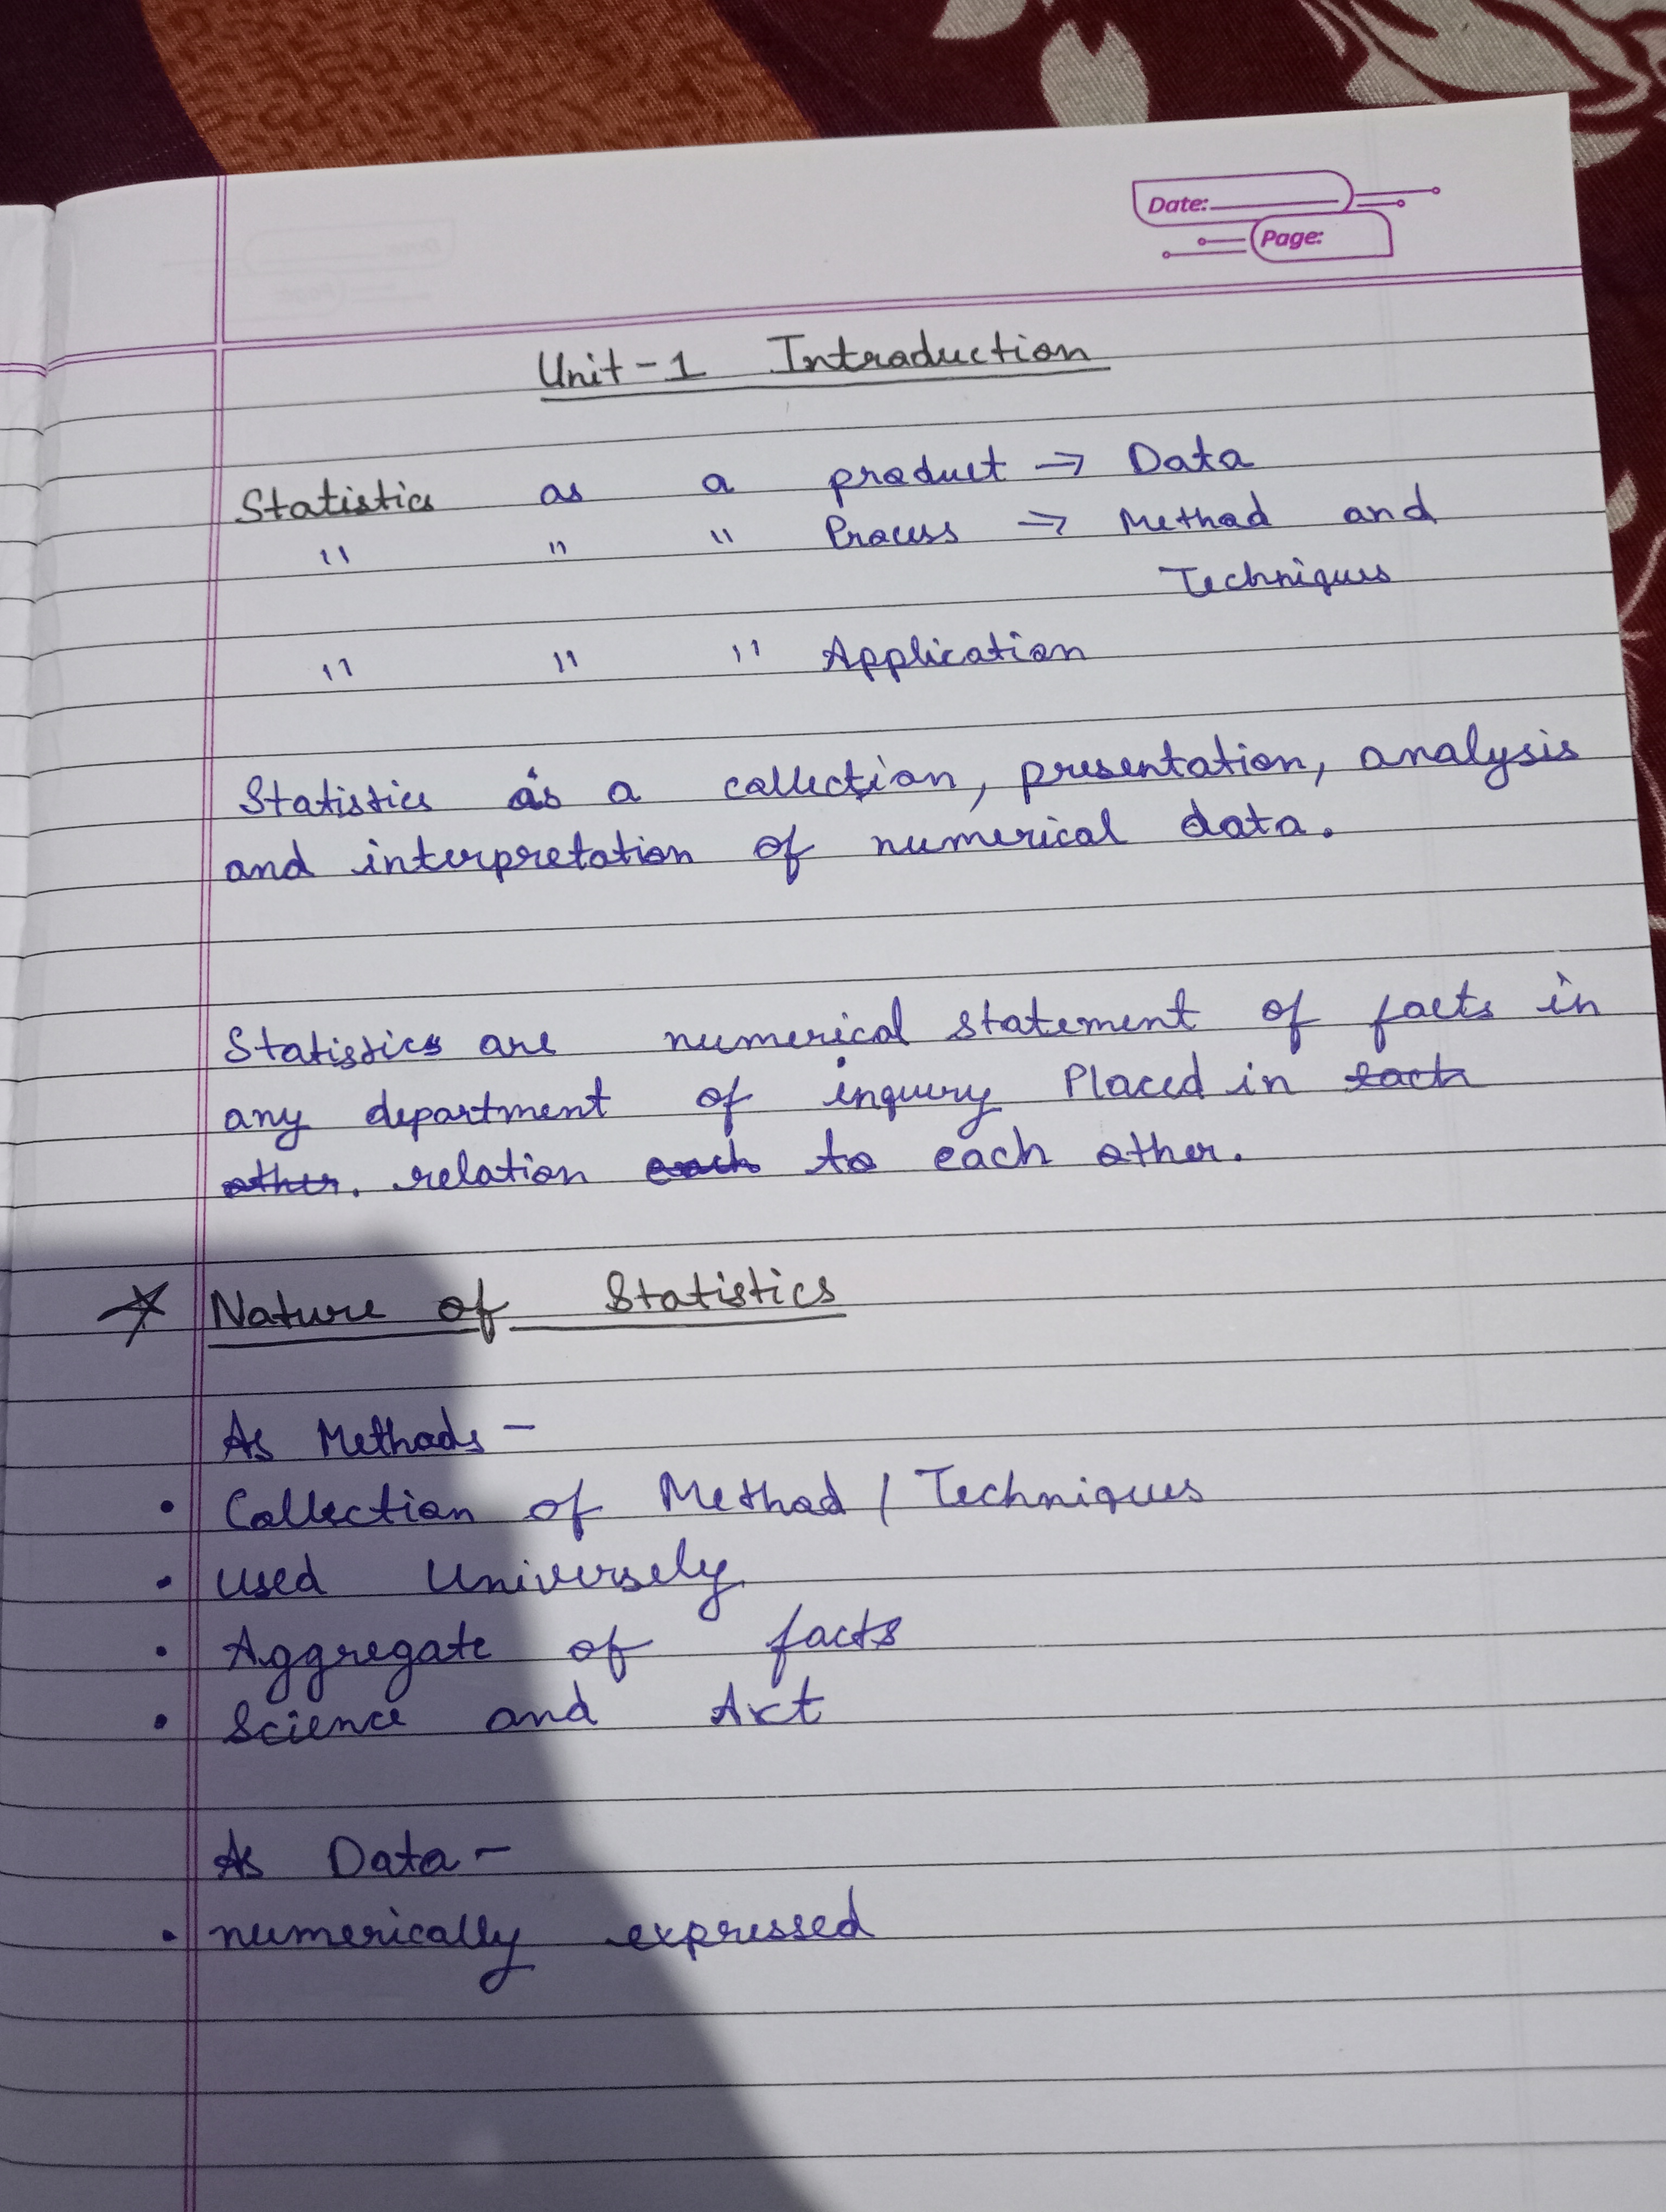 Date:
Page:
Unit-1 Introduction
Statistics as a product → Data
" " " Process → Method and
Techniques
" " " Application
Statistics is a collection, presentation, analysis
and interpretation of numerical data.
Statistics are numerical statement of facts in
any department of inquiry Placed in each
other. relation each to each other.
Nature of Statistics
As Methods -
• Collection of Method / Techniques
• used Universely
• Aggregate of facts
• Science and Art
As Data -
• numerically expressed